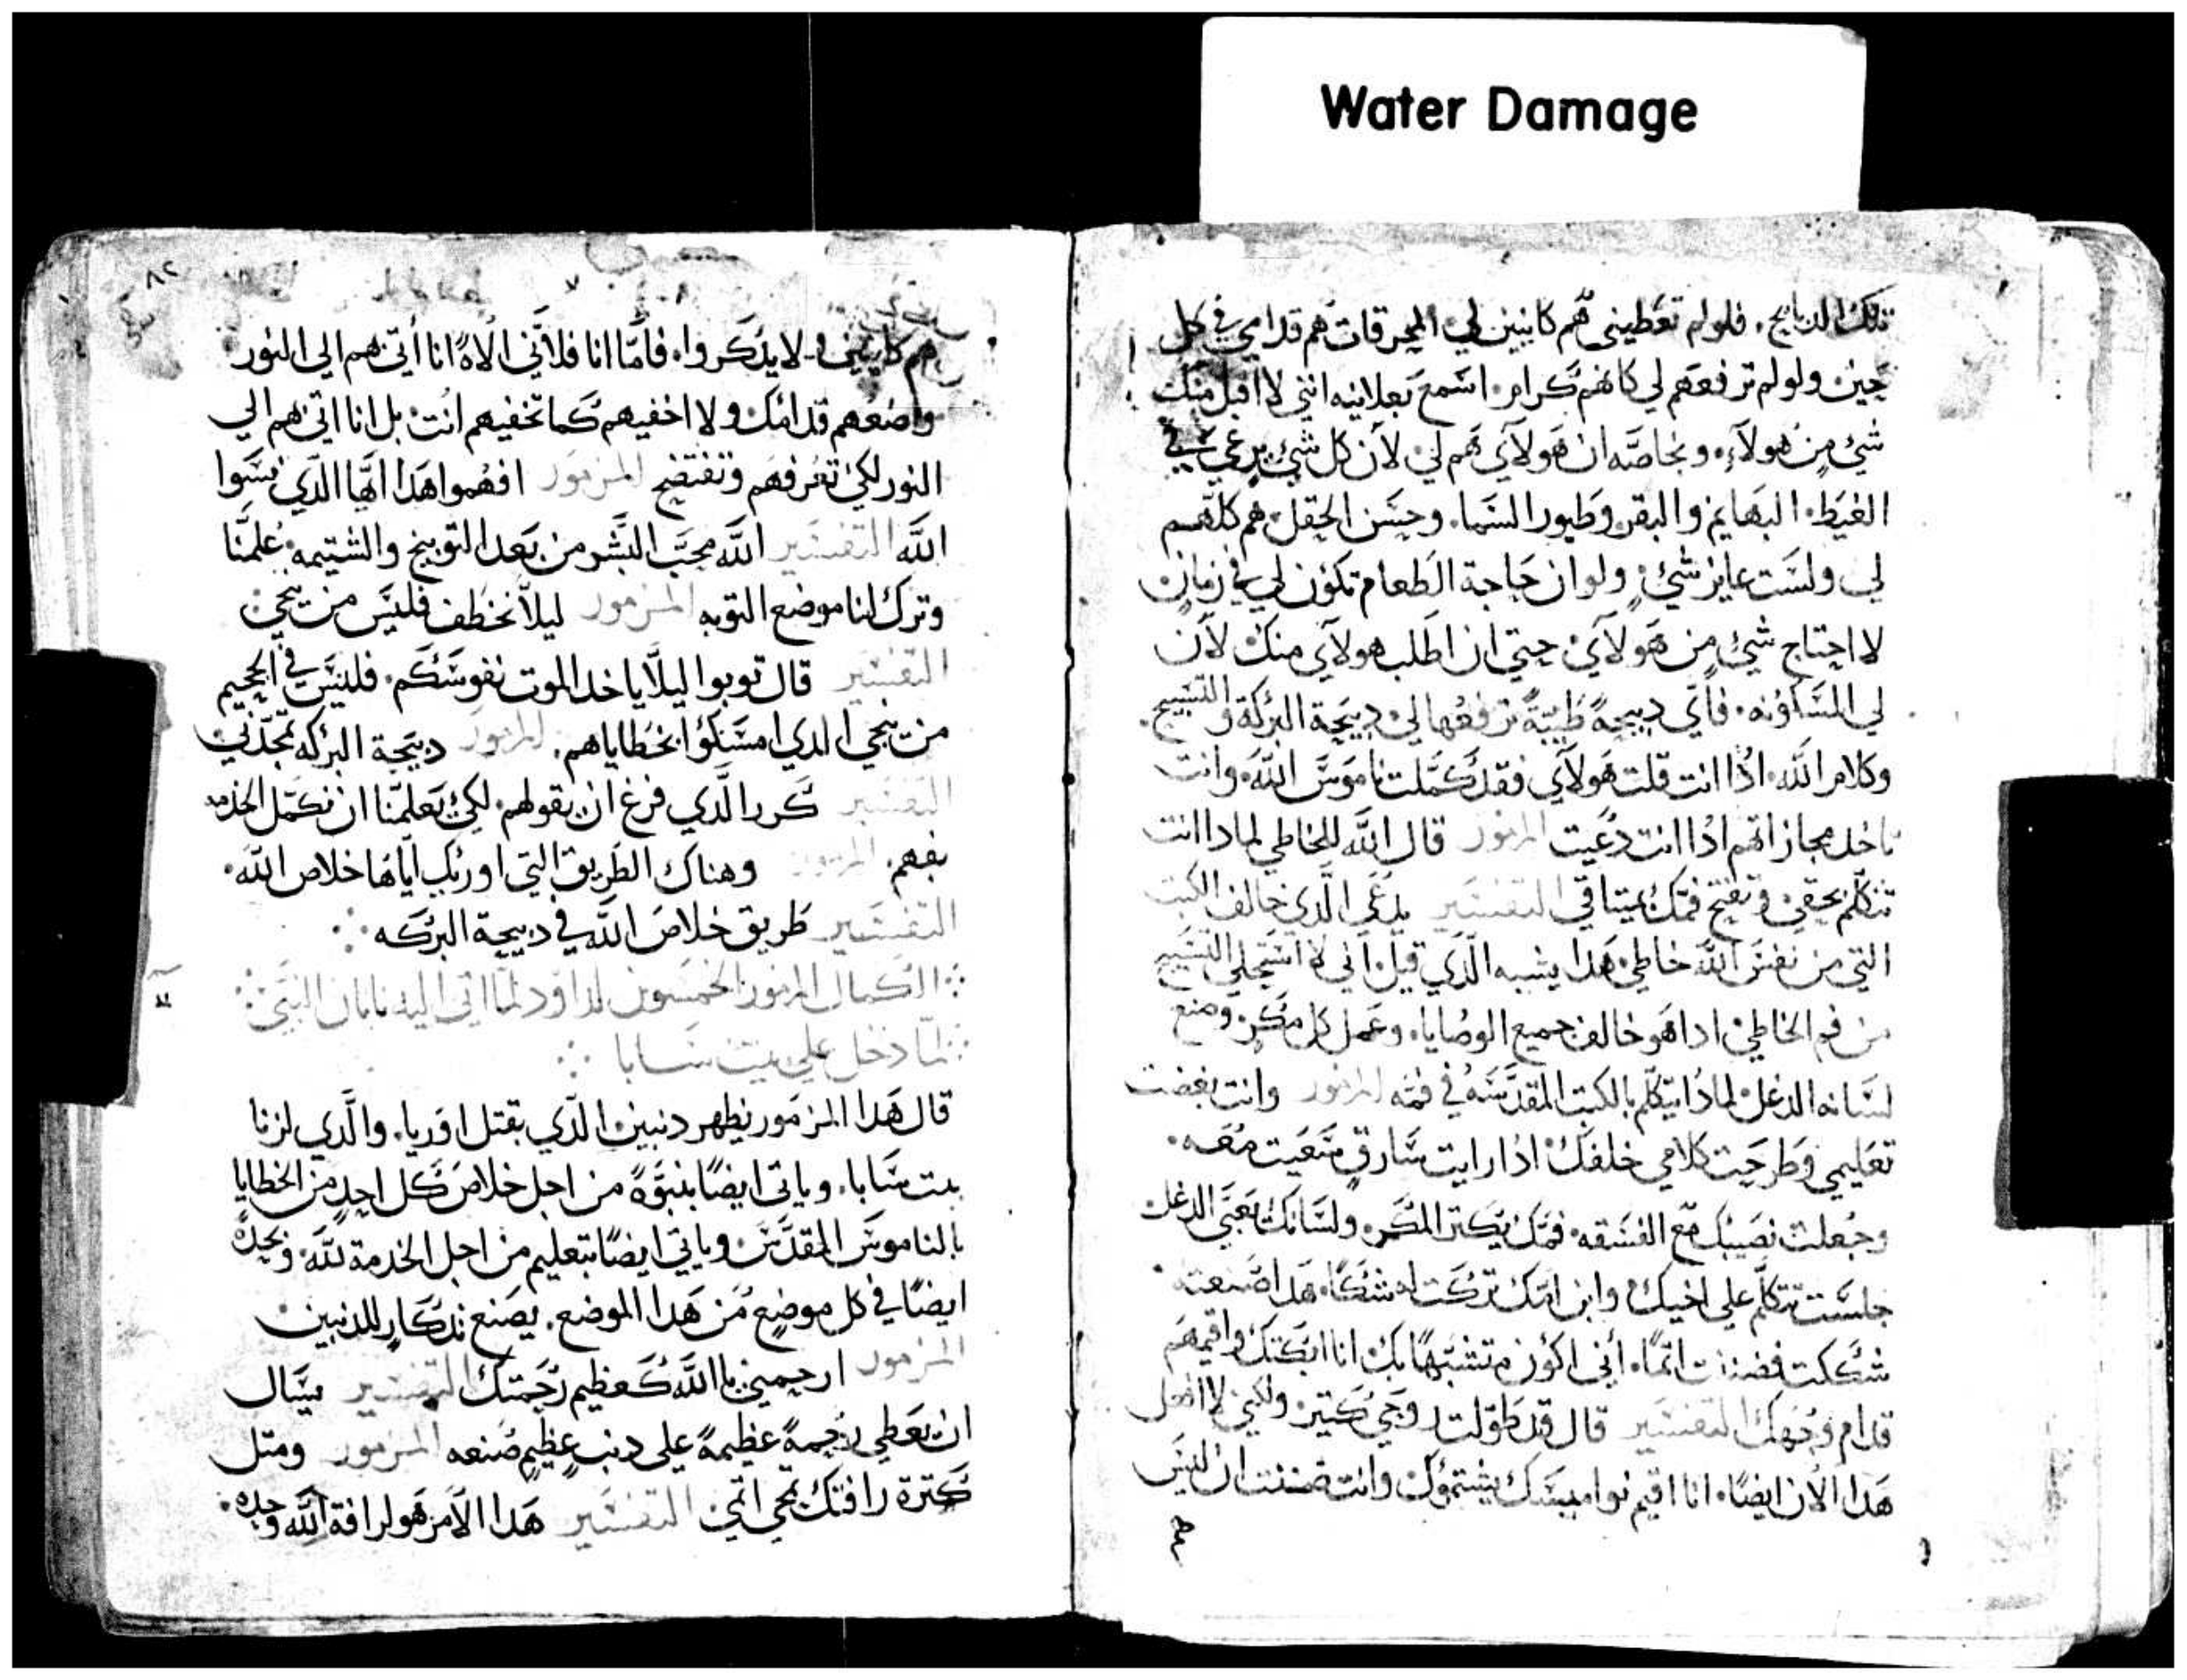 Water Damage
تلك الدبايح. فلولم تعطيني هم كاينين لي المحرقات هم قدامي في كل
حين ولولم ترفعهم لي كانهم كرام. اسمع بعلانيه انني لا اقبل منك
شئ من هولاء. وبخاصه ان هولاي هم لي لان كل شئ يرعي في
الغيط. البهايم والبقر وطيور السما. وحسن الحقل هم كلهم
لي ولست عايز شئ. ولو ان حاجة الطعام تكون لي في زمان
لا احتاج شئ من هولاي حتي ان اطلب هولاي منك لان
لي المسكونه. فاي دبيحة طيبة ترفعها لي دبيحة البركة والتسبيح.
وكلام الله. اذا انت قلت هولاي فقد كملت ناموس الله. وانت
تاخد مجازاتهم اذا انت دعيت المزمور قال الله للخاطي لمادا انت
تتكلم بحقي وتفتح فمك بميتاقي التفسير يدعي الدي خالف الكتب
التي من نفس الله خاطي هدا يشبه الدي قيل اني لا استحلي التسبيح
من فم الخاطي ادا هو خالف جميع الوصايا. وعمل كل مكر. وصنع
لسانه الدغل لمادا يتكلم بالكتب المقدسه في فمه المزمور وانت بغضت
تعليمي وطرحت كلامي خلفك ادا رايت سارق سعيت معه.
وجعلت نصيبك مع الفسقه. فمك يكتر المكر. ولسانك تعبي الدغل
جلست تتكلم علي اخيك وابن امك تركت له شكا. هدا صنعته
شككت فضننت اتما. اني اكون متشبها بك انا ابكتك واقيمهم
قدام وجهك التفسير قال قد طولت روحي كتير ولكني لا افعل
هدا الان ايضا. انا اقيم نواميسك يشتموك وانت ضننت ان ليس
٨٢
هم كاينين ولا يدكروا. فاما انا فلاني الاه انا اتي بهم الي النور
واضعهم قدامك ولا اخفيهم كما تخفيهم انت بل انا اتي بهم الي
النور لكي تعرفهم وتفتضح المزمور افهموا هدا ايها الدي نسوا
الله التفسير الله محب البشر من بعد التوبيخ والشتيمه علمنا
وترك لنا موضع التوبه المزمور ليلا نخطف فليس من ينجي
التفسير قال توبوا ليلا ياخد الموت نفوسكم. فليس في الجحيم
من ينجي الدي امسكوا بخطاياهم. المزمور دبيحة البركه تمجدني
التفسير كرر الدي فرغ ان يقولهم. لكي يعلمنا ان نكمل الخدمه
بفهم. المزمور وهناك الطريق التي اوريك اياها خلاص الله.
التفسير طريق خلاص الله في دبيحة البركه
الكمال المزمور الخمسون لداوود لما اتي اليه ناتان النبي
لما دخل علي بيت سابا
قال هدا المزمور يطهر دنبين الدي بقتل اوريا. والدي لزنا
بيت سابا. وياتي ايضا بنبوة من اجل خلاص كل احد من الخطايا
بالناموس المقدس وياتي ايضا بتعليم من اجل الخدمة لله. ونجده
ايضا في كل موضع من هدا الموضع. يصنع تدكار للدنبين
المزمور ارحمني يا الله كعظيم رحمتك التفسير يسال
ان يعطي رحمة عظيمة علي دنب عظيم صنعه المزمور ومتل
كترة رافتك تمحي اتمي التفسير هدا الامر هو لرافة الله وحده.